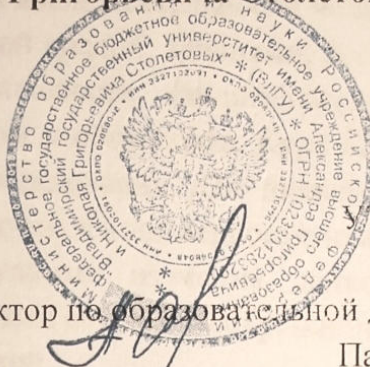 Григорьевича Столетов
Министерство образования и науки Российской Федерации
Федеральное государственное бюджетное образовательное учреждение высшего образования
"Владимирский государственный университет имени Александра Григорьевича
и Николая Григорьевича Столетовых" * (ВлГУ) * ОГРН
У
ктор по образовательной
Па